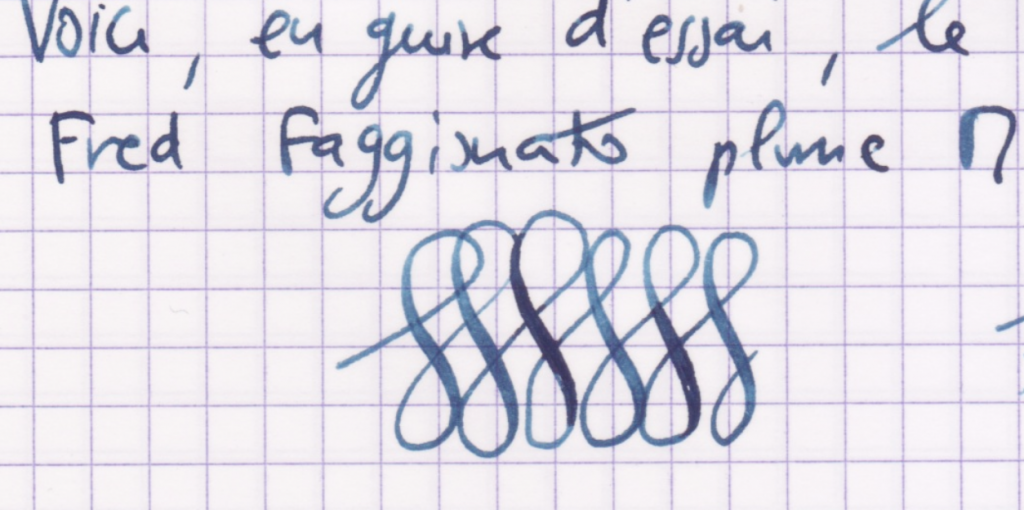 Voici, en guise d'essai, le
Fred Faggionato plume M